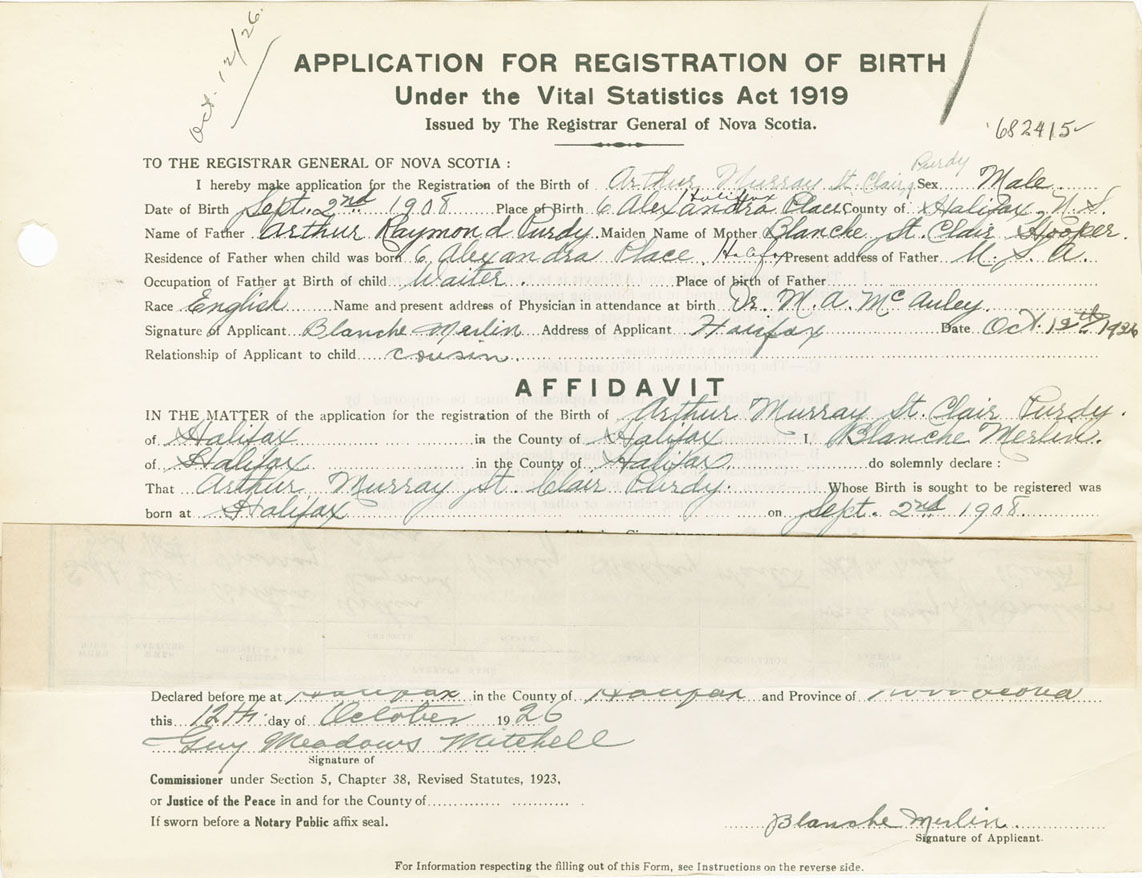 Oct. 12/26.
APPLICATION FOR REGISTRATION OF BIRTH
Under the Vital Statistics Act 1919
Issued by The Registrar General of Nova Scotia.
682415
TO THE REGISTRAR GENERAL OF NOVA SCOTIA :
Purdy
I hereby make application for the Registration of the Birth of Arthur Murray St. Clair, Sex Male
Halifax
Date of Birth Sept. 2nd 1908 Place of Birth 6 Alexandra Place County of Halifax N.S.
Name of Father Arthur Raymond Purdy Maiden Name of Mother Blanche St. Clair Hooper.
Residence of Father when child was born 6 Alexandra Place, Present address of Father U.S.A.
Occupation of Father at Birth of child Waiter. Place of birth of Father
Race English Name and present address of Physician in attendance at birth Dr. M. A. McAuley.
Signature of Applicant Blanche Merlin Address of Applicant Halifax Date Oct. 12th 1926
Relationship of Applicant to child cousin.
AFFIDAVIT
IN THE MATTER of the application for the registration of the Birth of Arthur Murray St. Clair Purdy.
of Halifax in the County of Halifax I, Blanche Merlin.
of Halifax in the County of Halifax do solemnly declare :
That Arthur Murray St. Clair Purdy. Whose Birth is sought to be registered was
born at Halifax on Sept. 2nd 1908.
Declared before me at Halifax in the County of Halifax and Province of Nova Scotia
this 12th day of October 1926
Guy Meadows Mitchell
Signature of
Commissioner under Section 5, Chapter 38, Revised Statutes, 1923,
or Justice of the Peace in and for the County of
If sworn before a Notary Public affix seal.
Blanche Merlin.
Signature of Applicant.
For Information respecting the filling out of this Form, see Instructions on the reverse side.